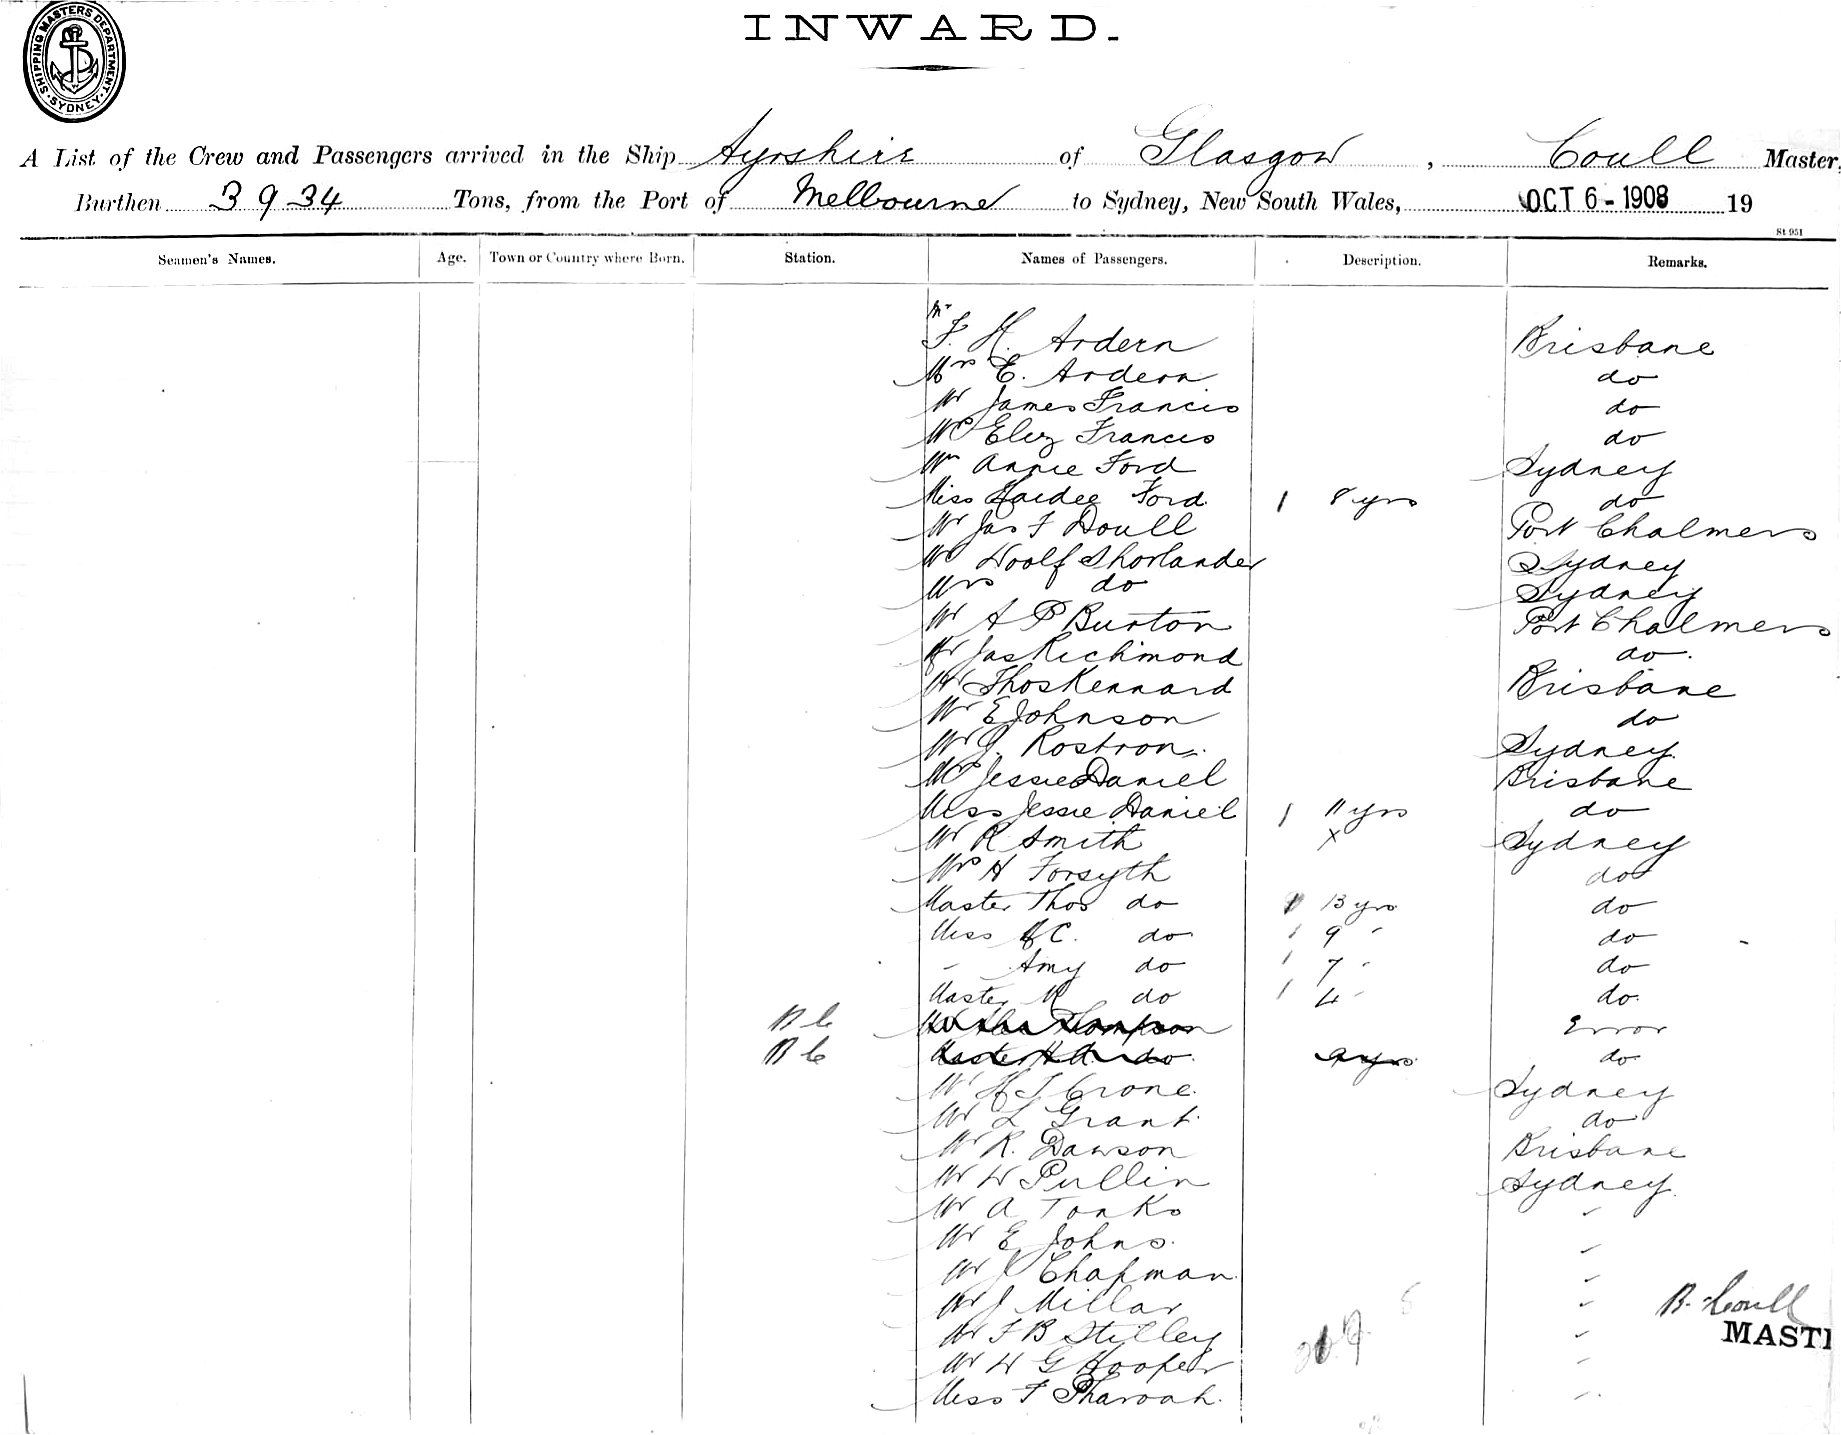 INWARD.
SHIPPING MASTERS DEPARTMENT. SYDNEY.
A List of the Crew and Passengers arrived in the Ship Ayrshire of Glasgow, Coull Master,
Burthen 3934 Tons, from the Port of Melbourne to Sydney, New South Wales, OCT 6 - 1908 19
St 951
Seamen's Names. Age. Town or Country where Born. Station. Names of Passengers. Description. Remarks.
Mr
F. H. Ardern Brisbane
Mrs E. Ardern do
Mr James Francis do
Mrs Eliz Francis do
Mrs Annie Ford Sydney
Miss Haidee Ford 1 8 yrs do
Mr Jas F Doull Port Chalmers
Mr Woolf Shorlander Sydney
Mrs do Sydney
Mr A P Burton Port Chalmers
Mr Jas Richmond do.
Mr Thos Kennard Brisbane
Mr E Johnson do
Mr J. Rostron. Sydney.
Mrs Jessie Daniel Brisbane
Miss Jessie Daniel 1 11 yrs do
Mr R Smith x Sydney
Mrs H Forsyth do
Master Thos do 1 13 yrs do
Miss C. do 1 9 " do
" Amy do 1 7 " do
Master do 1 4 " do.
B C Thompson Error
B C Master H do 9 yrs do
Mr H J Crone. Sydney
Mr L Grant. do
Mr R. Dawson Brisbane
Mr W Pullin Sydney.
Mr A Tonks "
Mr E Johns. "
Mr J Chapman "
Mr J Millar "
B. Coull
Mr F B Stilley "
MAST
Mr W G Hooper "
Miss F Pharoah. "